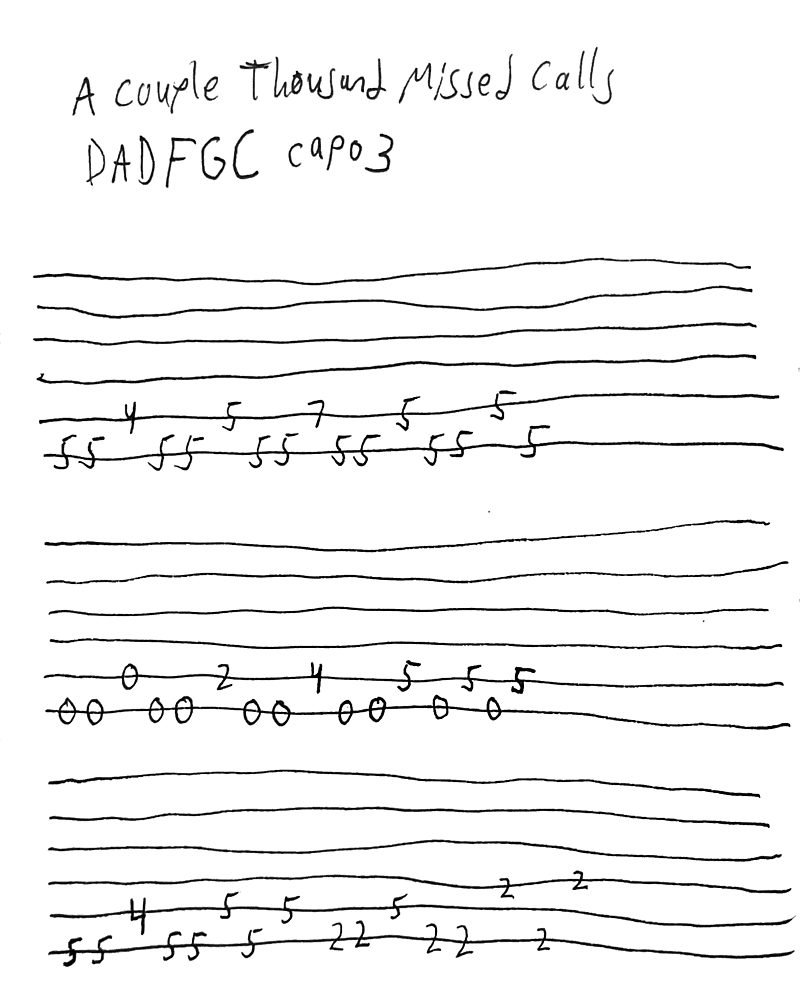 A Couple Thousand Missed Calls
DADFGC capo 3
4 5 7 5 5
55 55 55 55 55 5
0 2 4 5 5 5
00 00 00 00 0 0
2 2
4 5 5 5
55 55 5 22 22 2